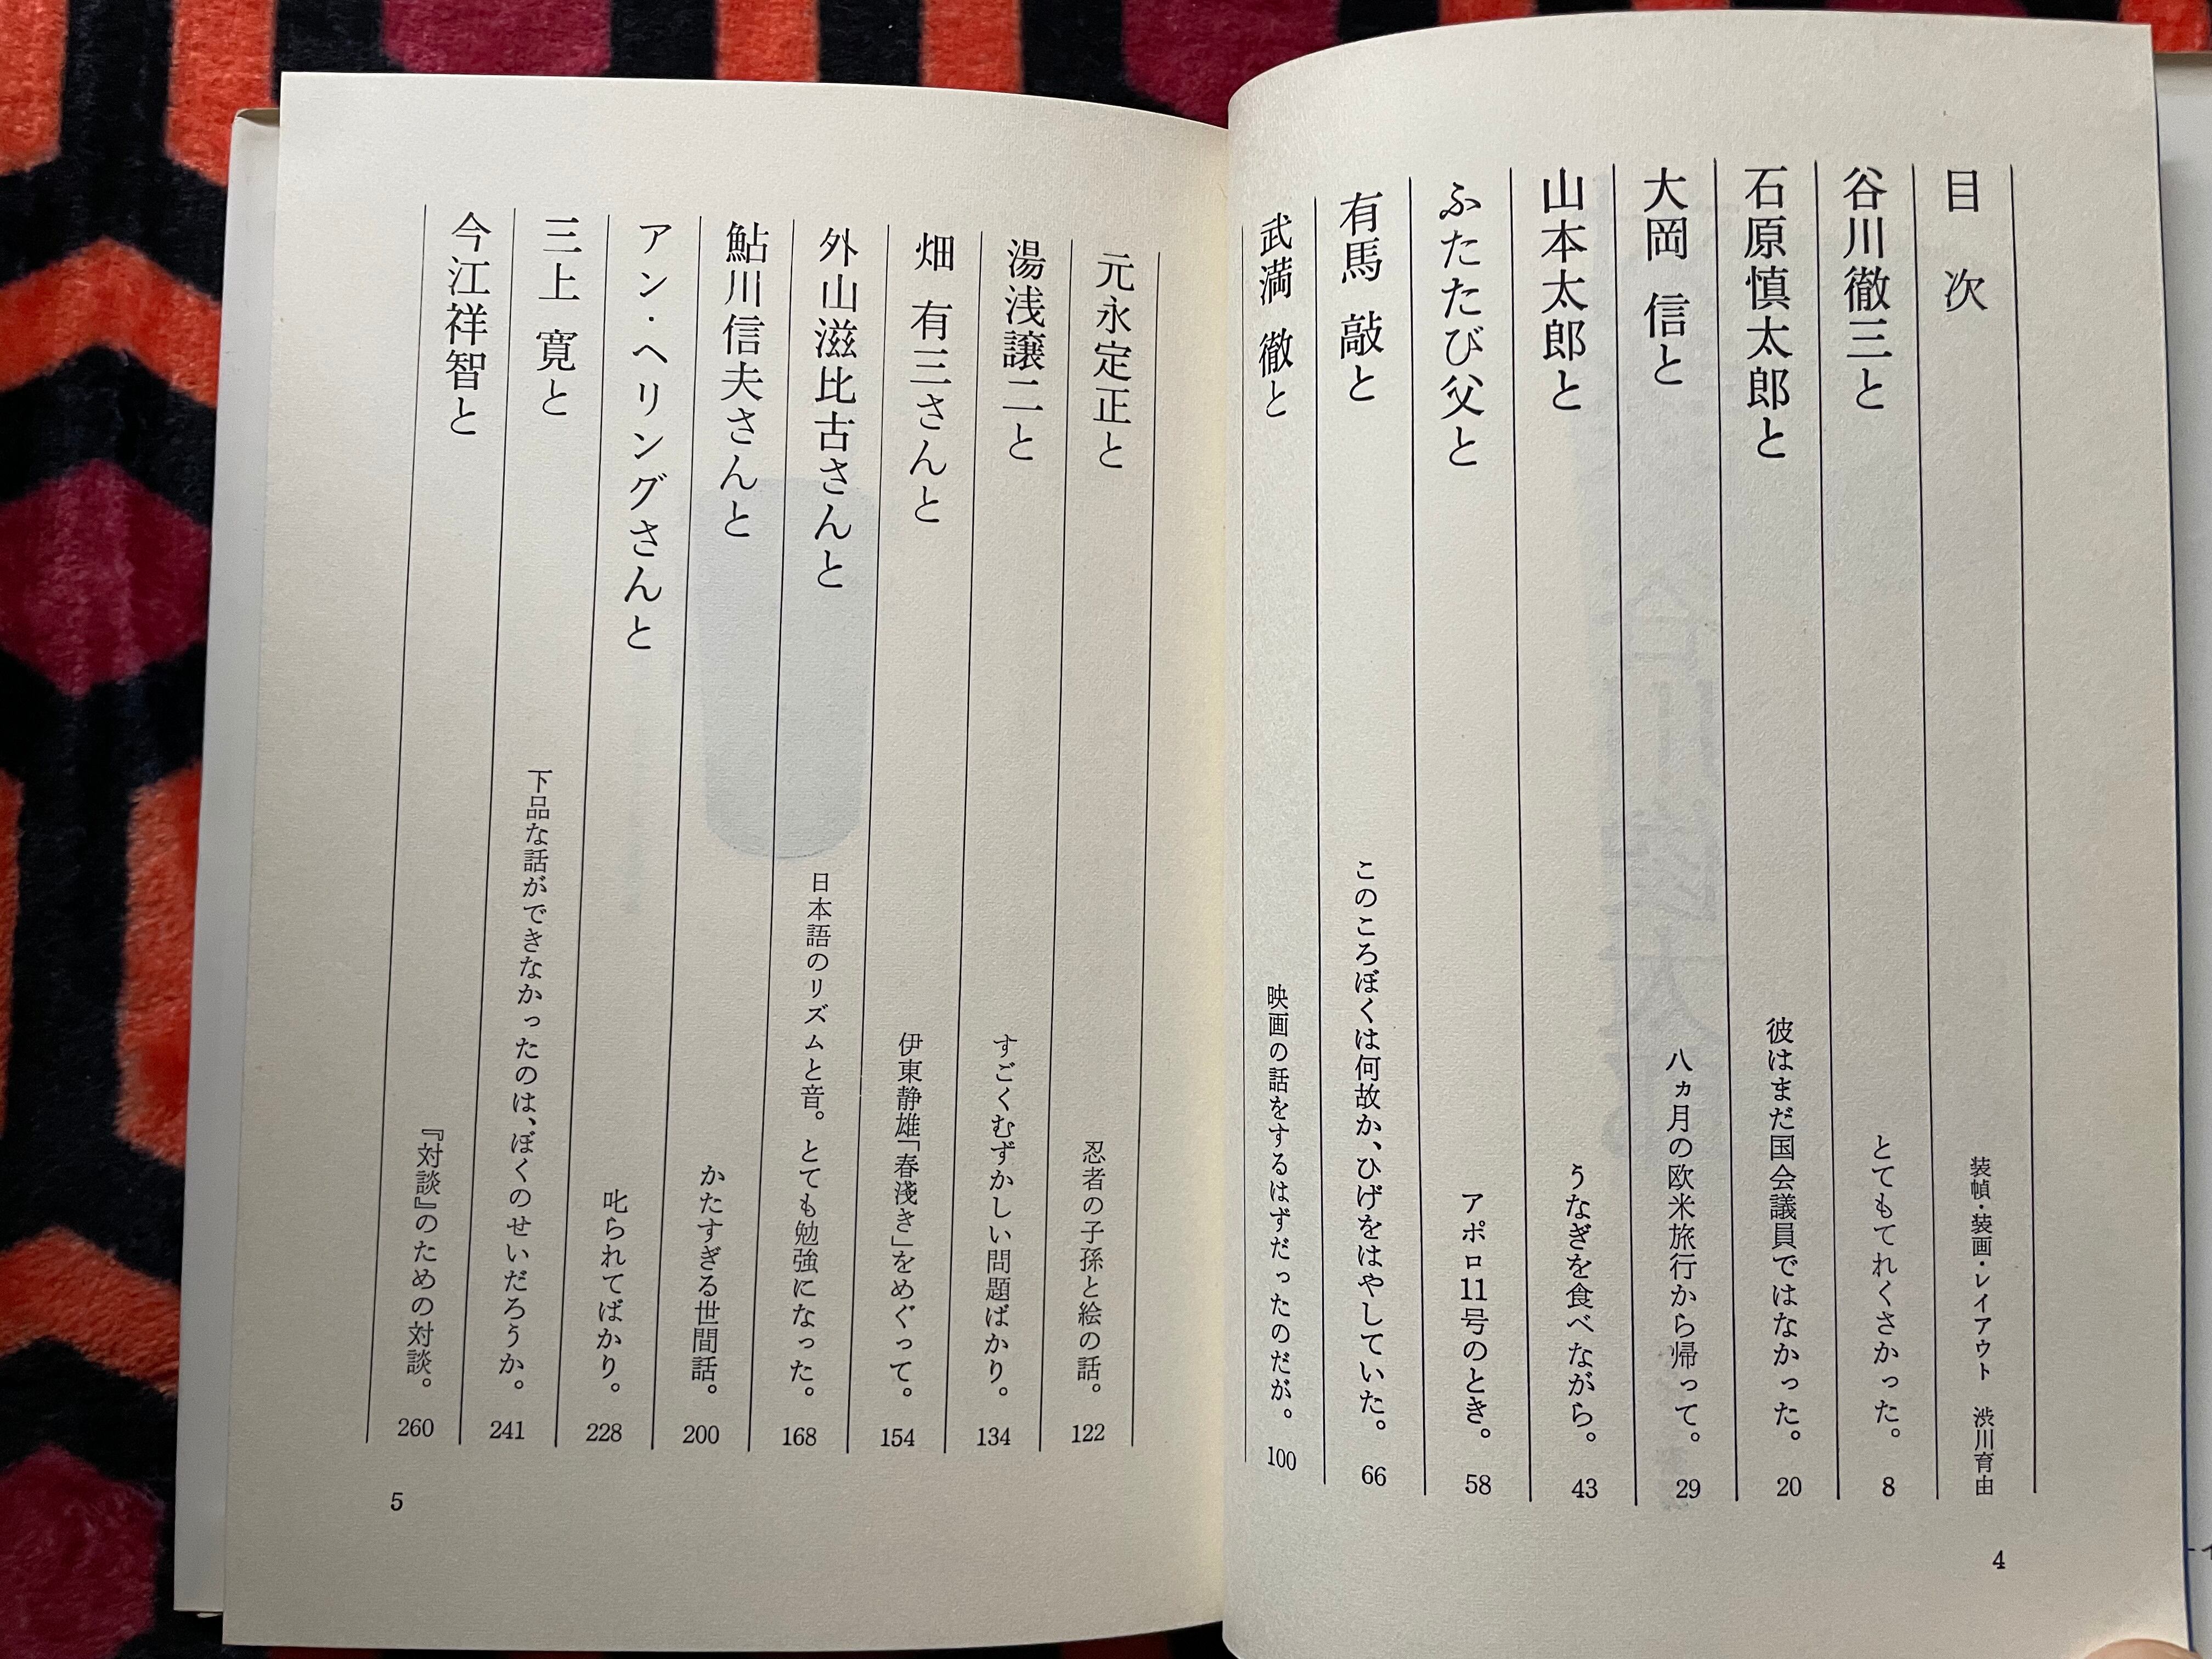 目次
装幀・装画・レイアウト 渋川育由
谷川徹三と とてもてれくさかった。 8
石原慎太郎と 彼はまだ国会議員ではなかった。 20
大岡 信と 八ヵ月の欧米旅行から帰って。 29
山本太郎と うなぎを食べながら。 43
ふたたび父と アポロ11号のとき。 58
有馬 敲と このころぼくは何故か、ひげをはやしていた。 66
武満 徹と 映画の話をするはずだったのだが。 100
4
元永定正と 忍者の子孫と絵の話。 122
湯浅譲二と すごくむずかしい問題ばかり。 134
畑 有三さんと 伊東静雄「春淺き」をめぐって。 154
外山滋比古さんと 日本語のリズムと音。とても勉強になった。 168
鮎川信夫さんと かたすぎる世間話。 200
アン・ヘリングさんと 叱られてばかり。 228
三上 寛と 下品な話ができなかったのは、ぼくのせいだろうか。 241
今江祥智と 『対談』のための対談。 260
5